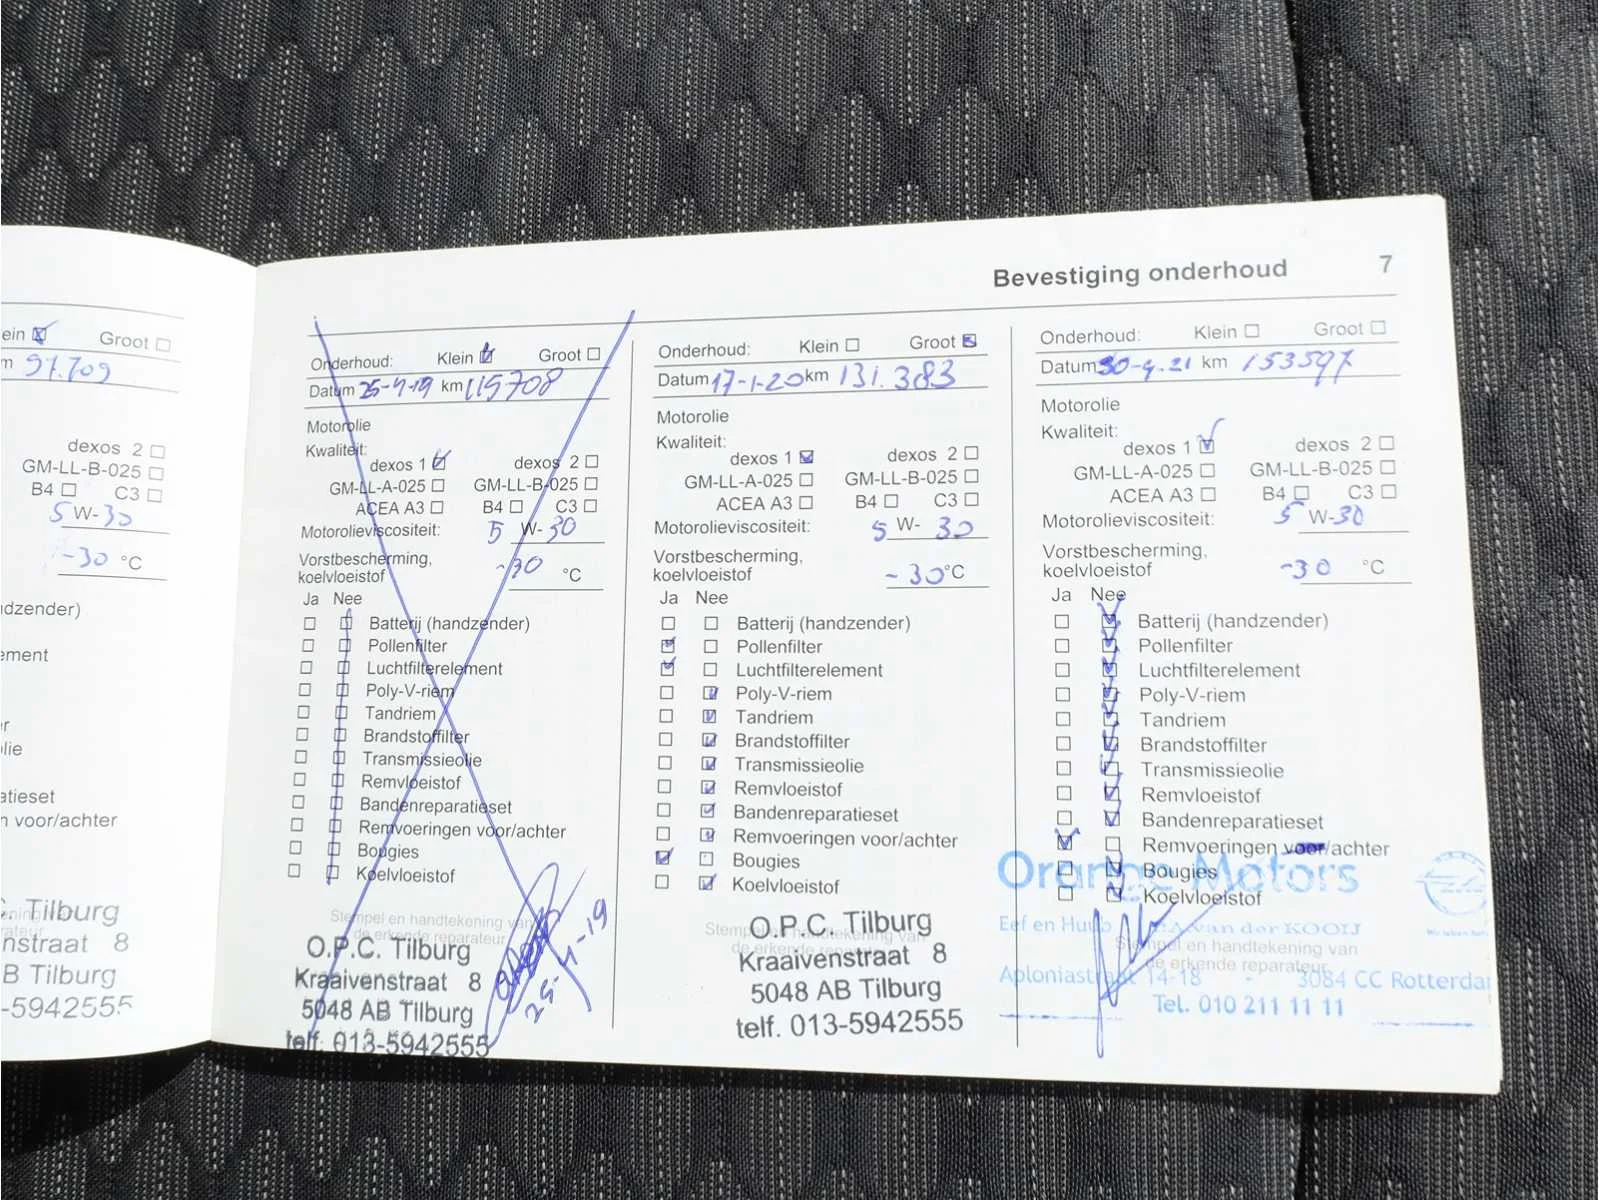 Bevestiging onderhoud 7
Klein Groot
97.709
dexos 2
GM-LL-B-025
B4 C3
5 W-30
-30 °C
C. Tilburg
8
B Tilburg
-5942555
Onderhoud: Klein Groot
Datum 25-4-19 km 115708
Motorolie
Kwaliteit:
dexos 1 dexos 2
GM-LL-A-025 GM-LL-B-025
ACEA A3 B4 C3
Motorolieviscositeit: 5 W-30
Vorstbescherming,
koelvloeistof -30 °C
Ja Nee
Batterij (handzender)
Pollenfilter
Luchtfilterelement
Poly-V-riem
Tandriem
Brandstoffilter
Transmissieolie
Remvloeistof
Bandenreparatieset
Remvoeringen voor/achter
Bougies
Koelvloeistof
Stempel en handtekening van
de erkende reparateur
O.P.C. Tilburg
Kraaivenstraat 8
5048 AB Tilburg
telf. 013-5942555
25-4-19
Onderhoud: Klein Groot
Datum 17-1-20 km 131.383
Motorolie
Kwaliteit:
dexos 1 dexos 2
GM-LL-A-025 GM-LL-B-025
ACEA A3 B4 C3
Motorolieviscositeit: 5 W- 30
Vorstbescherming,
koelvloeistof -30 °C
Ja Nee
Batterij (handzender)
Pollenfilter
Luchtfilterelement
Poly-V-riem
Tandriem
Brandstoffilter
Transmissieolie
Remvloeistof
Bandenreparatieset
Remvoeringen voor/achter
Bougies
Koelvloeistof
Stempel en handtekening van
de erkende reparateur
O.P.C. Tilburg
Kraaivenstraat 8
5048 AB Tilburg
telf. 013-5942555
Onderhoud: Klein Groot
Datum 30-4-21 km 153597
Motorolie
Kwaliteit:
dexos 1 dexos 2
GM-LL-A-025 GM-LL-B-025
ACEA A3 B4 C3
Motorolieviscositeit: 5 W-30
Vorstbescherming,
koelvloeistof -30 °C
Ja Nee
Batterij (handzender)
Pollenfilter
Luchtfilterelement
Poly-V-riem
Tandriem
Brandstoffilter
Transmissieolie
Remvloeistof
Bandenreparatieset
Remvoeringen voor/achter
Bougies
Koelvloeistof
Stempel en handtekening van
de erkende reparateur
Orange Motors
Eef en Huub van der KOOIJ
Aploniastraat 14-18 - 3084 CC Rotterdam
Tel. 010 211 11 11